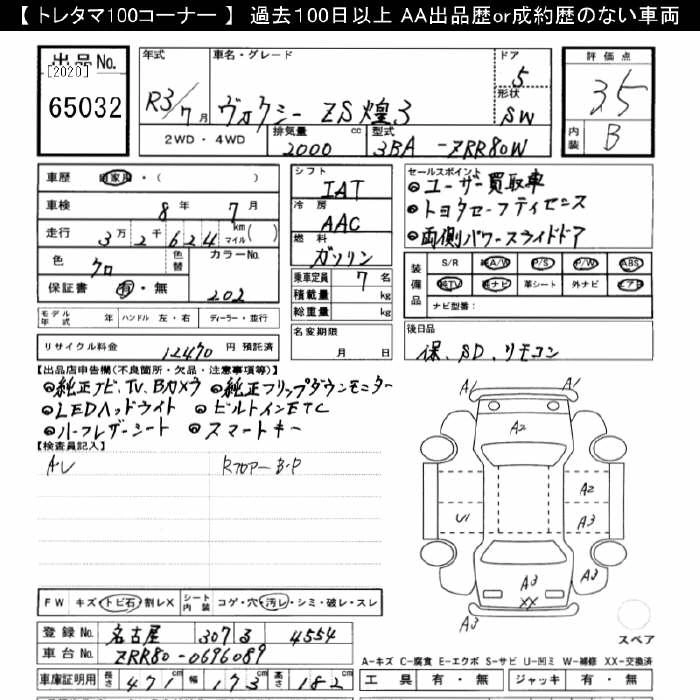 【 トレタマ100コーナー 】 過去100日以上 AA出品歴or成約歴のない車両
出品No.
[2020]
65032
年式
R3/7月
車名・グレード
ヴォクシー ZS煌3
ドア
5
形状
SW
評価点
3.5
内装
B
2WD・4WD
排気量
2000
cc
型式
3BA-ZRR80W
車歴
自家用・( )
車検
8年 7月
走行
3万2千624
km マイル( )
色
クロ
色替
カラーNo.
202
保証書
有・無
モデル年式 年
ハンドル 左・右
ディーラー・並行
リサイクル料金 12470 円 預託済
シフト
IAT
冷房
AAC
燃料
ガソリン
乗車定員 7 名
積載量 kg
総重量 kg
名変期限
月 日
セールスポイント
◎ユーザー買取車
◎トヨタセーフティセンス
◎両側パワースライドドア
装備品
S/R
純A/W
P/S
P/W
ABS
純TV
純ナビ
革シート
外ナビ
エアB
ナビ型番:
後日品
保、SD、リモコン
【出品店申告欄(不良箇所・欠品・注意事項等)】
◎純正ナビ、TV、Bカメラ ◎純正フリップダウンモニター
◎LEDヘッドライト ◎ビルトインETC
◎ハーフレザーシート ◎スマートキー
【検査員記入】
A・U
Rフロアー B・P
A1
A1
A2
A2
A3
U1
A3
XX
A3
A3
スペア
FW
キズ・トビ石・割レX
シート内装
コゲ・穴・汚レ・シミ・破レ・スレ
登録No.
名古屋 307 る 4554
車台No.
ZRR80-0696089
車庫証明用
長さ 471 cm
幅 173 cm
高さ 182 cm
A-キズ C-腐食 E-エクボ S-サビ U-凹ミ W-補修 XX-交換済
工具 有・無
ジャッキ 有・無